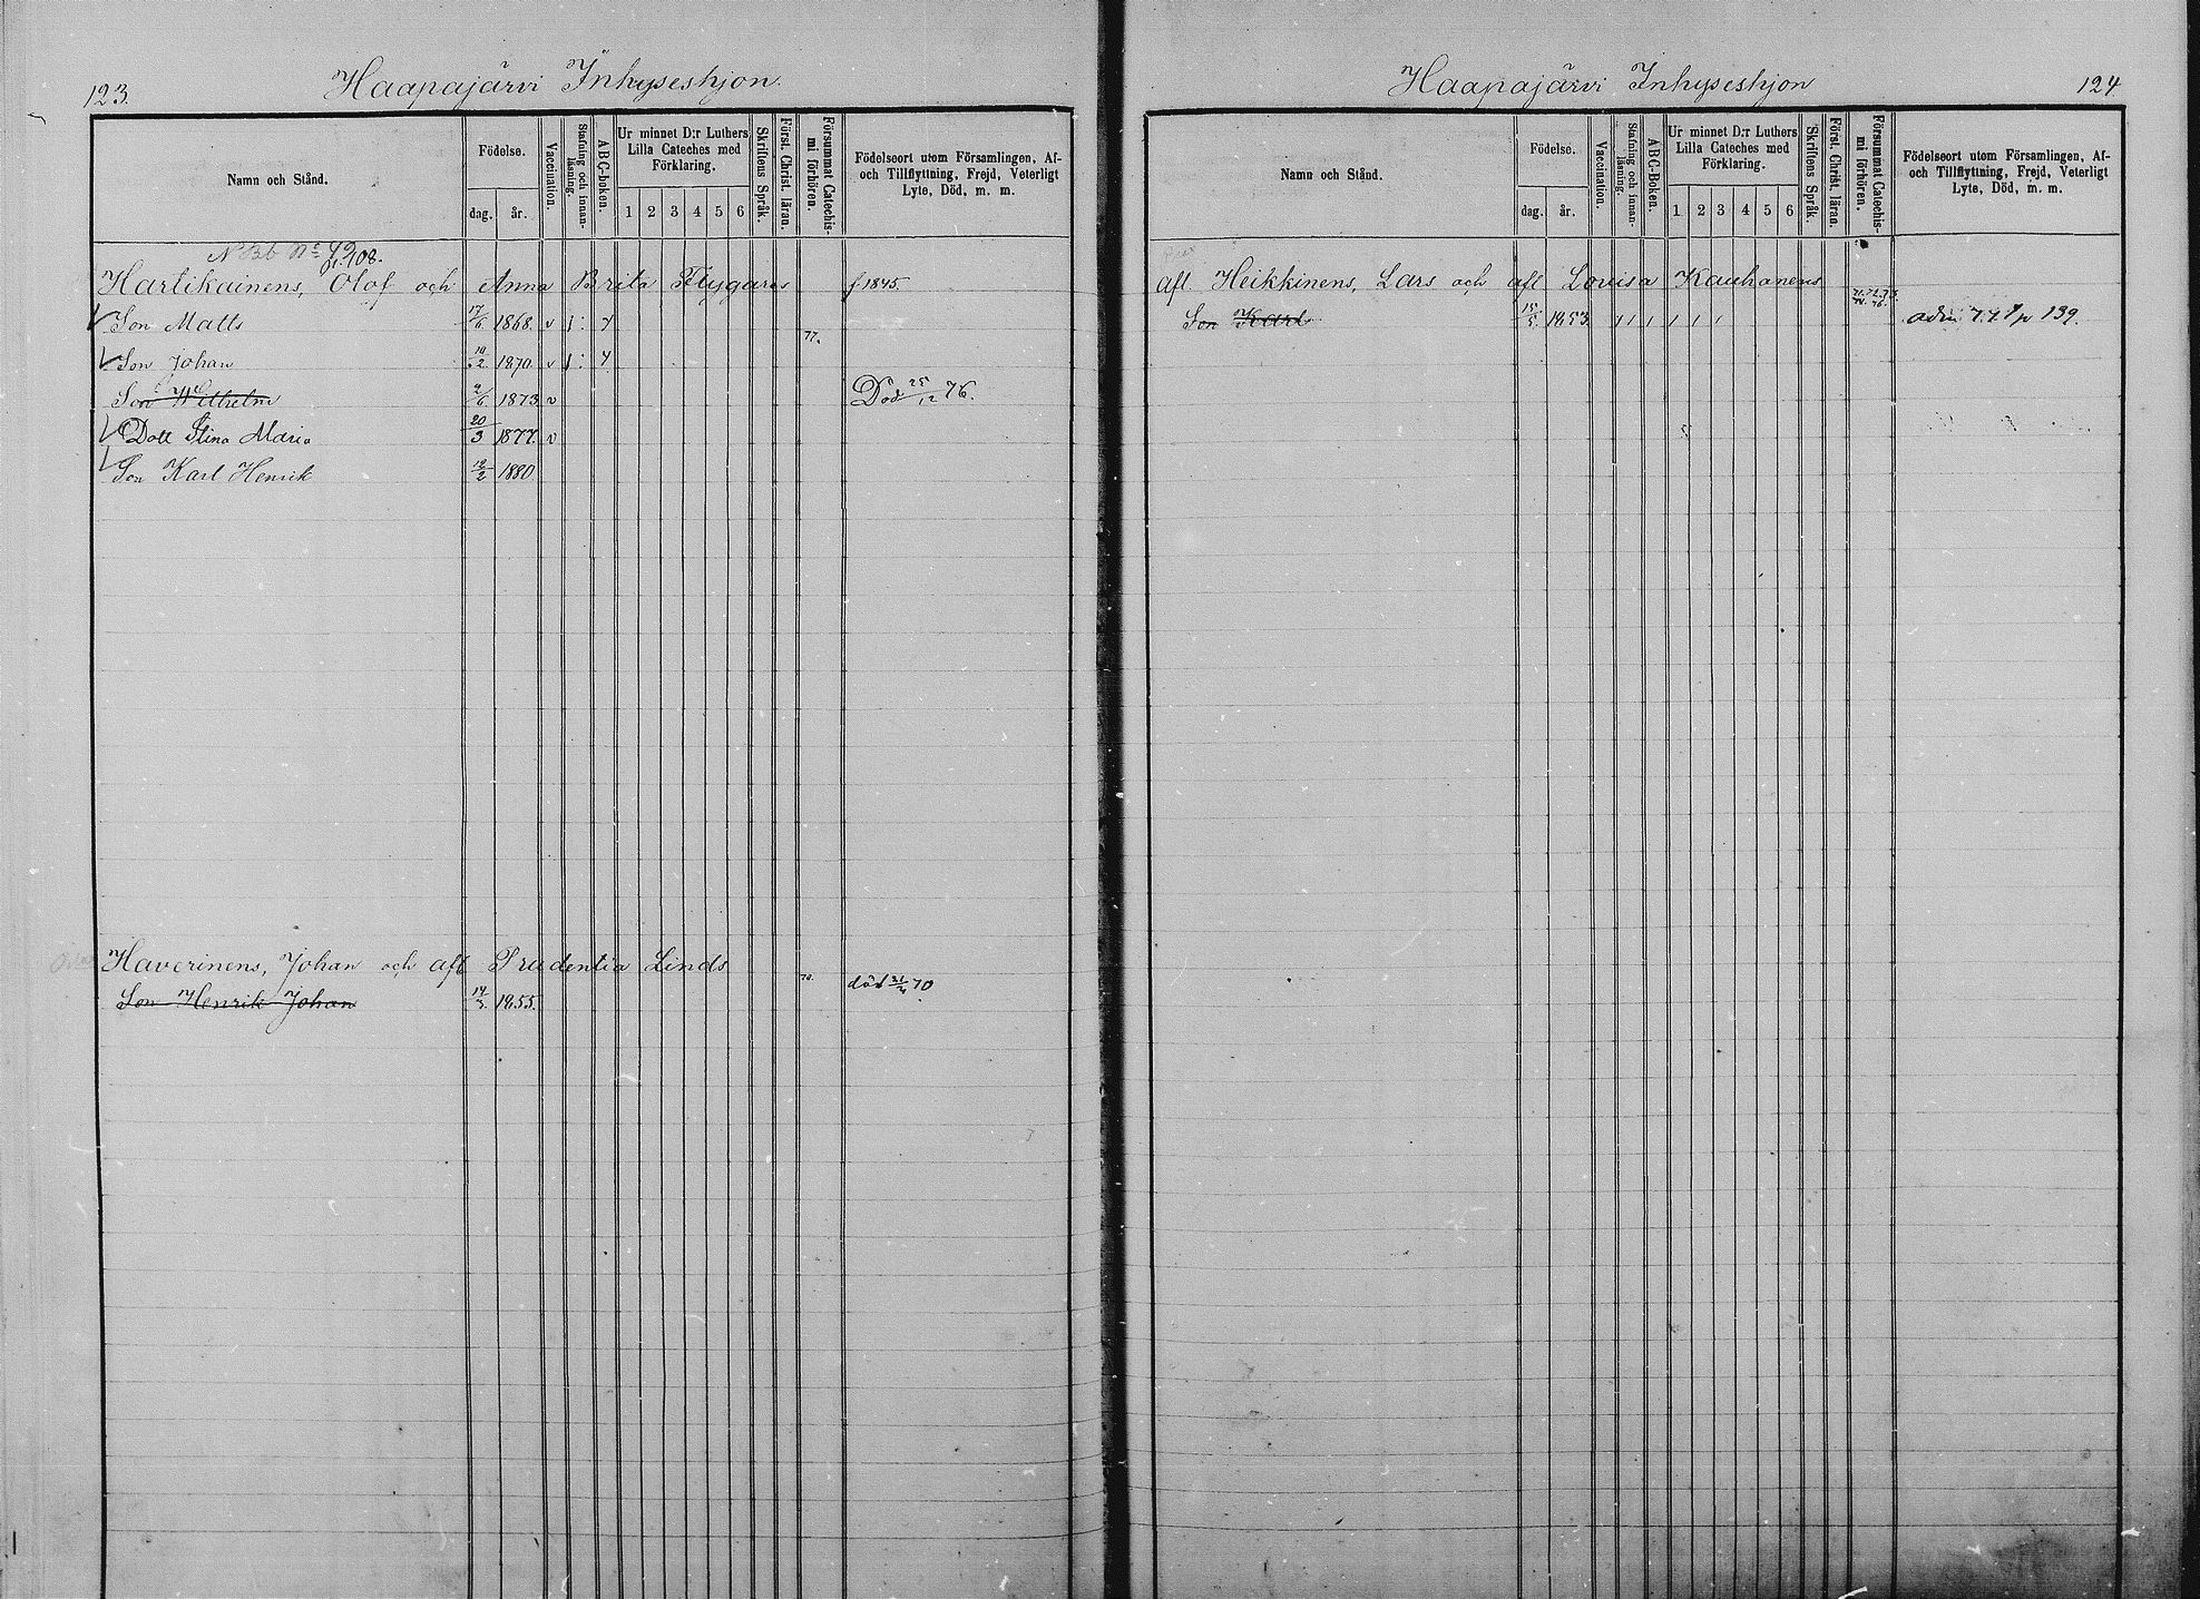 123.
Haapajärvi Inhyseshjon.
Namn och Stånd.
Födelse.
dag.
år.
Vaccination.
Stafning och innanläsning.
ABC-boken.
Ur minnet D:r Luthers Lilla Cateches med Förklaring.
1 2 3 4 5 6
Skriftens Språk.
Först. Christ. läran.
Försummat Catechismi förhören.
Födelseort utom Församlingen, Af- och Tillflyttning, Frejd, Veterligt Lyte, Död, m. m.
Hartikainens, Olof och Anna Brita Flygares f 1845.
Son Matts 17/6 1868. v
77.
Son Johan 10/2 1870. v
Son Wilhelm 2/6 1873 v Död 25/12 76.
Dott Stina Maria 20/3 1877. v
Son Karl Henrik 12/2 1880
Haverinens, Johan och afl Prudentia Linds
70.
Son Henrik Johan 14/3. 1855. död 70
Haapajärvi Inhyseshjon
124
Namn och Stånd.
Födelse.
dag.
år.
Vaccination.
Stafning och innanläsning.
ABC-Boken.
Ur minnet D:r Luthers Lilla Cateches med Förklaring.
1 2 3 4 5 6
Skriftens Språk.
Först. Christ. läran.
Försummat Catechismi förhören.
Födelseort utom Församlingen, Af- och Tillflyttning, Frejd, Veterligt Lyte, Död, m. m.
afl. Heikkinens, Lars och afl Lovisa Kauhanens
71. 72. 73.
74. 76.
Son Karl 15/5. 1853. 139.